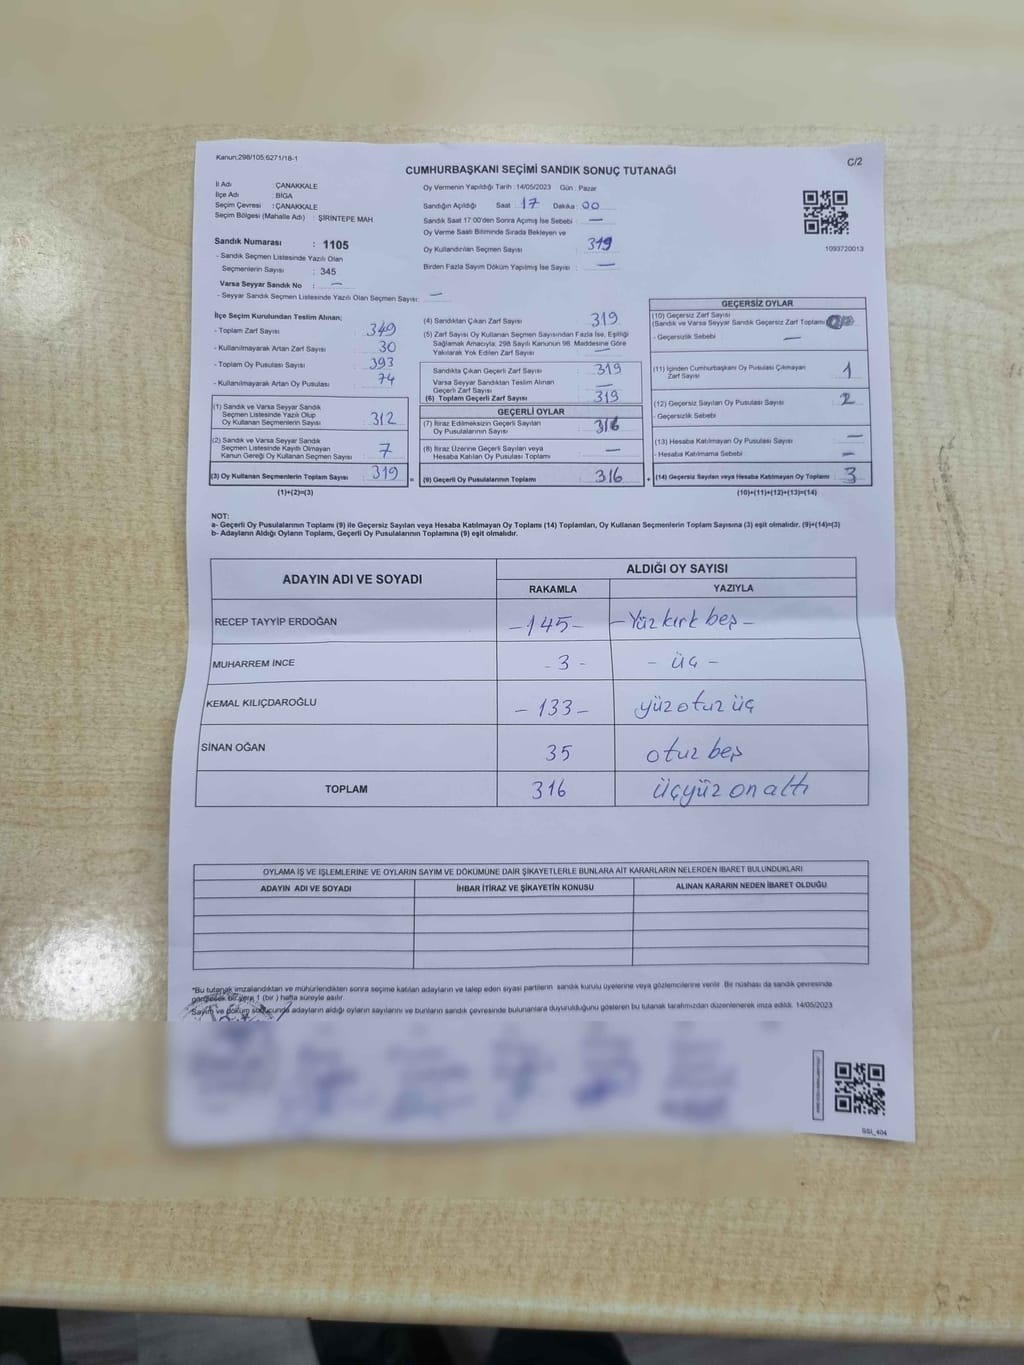 Kanun:298/105;6271/18-1
C/2
CUMHURBAŞKANI SEÇİMİ SANDIK SONUÇ TUTANAĞI
İl Adı : ÇANAKKALE
İlçe Adı : BİGA
Seçim Çevresi : ÇANAKKALE
Seçim Bölgesi (Mahalle Adı) : ŞİRİNTEPE MAH.
Sandık Numarası : 1105
- Sandık Seçmen Listesinde Yazılı Olan
Seçmenlerin Sayısı : 345
Varsa Seyyar Sandık No : —
- Seyyar Sandık Seçmen Listesinde Yazılı Olan Seçmen Sayısı: —
Oy Vermenin Yapıldığı Tarih : 14/05/2023 Gün : Pazar
Sandığın Açıldığı Saat : 17 Dakika : 00
Sandık Saat 17:00'den Sonra Açımış İse Sebebi : —
Oy Verme Saati Bitiminde Sırada Bekleyen ve
Oy Kullandırılan Seçmen Sayısı : 319
Birden Fazla Sayım Döküm Yapılmış İse Sayısı : —
1093720013
İlçe Seçim Kurulundan Teslim Alınan;
- Toplam Zarf Sayısı : 349
- Kullanılmayarak Artan Zarf Sayısı : 30
- Toplam Oy Pusulası Sayısı : 393
- Kullanılmayarak Artan Oy Pusulası : 74
(1) Sandık ve Varsa Seyyar Sandık
Seçmen Listesinde Yazılı Olup
Oy Kullanan Seçmenlerin Sayısı : 312
(2) Sandık ve Varsa Seyyar Sandık
Seçmen Listesinde Kayıtlı Olmayan
Kanun Gereği Oy Kullanan Seçmen Sayısı : 7
(3) Oy Kullanan Seçmenlerin Toplam Sayısı : 319
(1)+(2)=(3)
(4) Sandıktan Çıkan Zarf Sayısı : 319
(5) Zarf Sayısı Oy Kullanan Seçmen Sayısından Fazla İse, Eşitliği
Sağlamak Amacıyla; 298 Sayılı Kanunun 98. Maddesine Göre
Yakılarak Yok Edilen Zarf Sayısı : —
Sandıkta Çıkan Geçerli Zarf Sayısı : 319
Varsa Seyyar Sandıktan Teslim Alınan
Geçerli Zarf Sayısı : —
(6) Toplam Geçerli Zarf Sayısı : 319
GEÇERLİ OYLAR
(7) İtiraz Edilmeksizin Geçerli Sayılan
Oy Pusulalarının Sayısı : 316
(8) İtiraz Üzerine Geçerli Sayılan veya
Hesaba Katılan Oy Pusulası Toplamı : —
(9) Geçerli Oy Pusulalarının Toplamı : 316
GEÇERSİZ OYLAR
(10) Geçersiz Zarf Sayısı
(Sandık ve Varsa Seyyar Sandık Geçersiz Zarf Toplamı)
- Geçersizlik Sebebi : —
(11) İçinden Cumhurbaşkanı Oy Pusulası Çıkmayan
Zarf Sayısı : 1
(12) Geçersiz Sayılan Oy Pusulası Sayısı : 2
- Geçersizlik Sebebi
(13) Hesaba Katılmayan Oy Pusulası Sayısı : —
- Hesaba Katılmama Sebebi : —
(14) Geçersiz Sayılan veya Hesaba Katılmayan Oy Toplamı : 3
(10)+(11)+(12)+(13)=(14)
NOT:
a- Geçerli Oy Pusulalarının Toplamı (9) ile Geçersiz Sayılan veya Hesaba Katılmayan Oy Toplamı (14) Toplamları, Oy Kullanan Seçmenlerin Toplam Sayısına (3) eşit olmalıdır. (9)+(14)=(3)
b- Adayların Aldığı Oyların Toplamı, Geçerli Oy Pusulalarının Toplamına (9) eşit olmalıdır.
ADAYIN ADI VE SOYADI ALDIĞI OY SAYISI
RAKAMLA YAZIYLA
RECEP TAYYİP ERDOĞAN -145- -Yüz kırk beş-
MUHARREM İNCE -3- -üç-
KEMAL KILIÇDAROĞLU -133- yüz otuz üç
SİNAN OĞAN 35 otuz beş
TOPLAM 316 üçyüz on altı
OYLAMA İŞ VE İŞLEMLERİNE VE OYLARIN SAYIM VE DÖKÜMÜNE DAİR ŞİKAYETLERLE BUNLARA AİT KARARLARIN NELERDEN İBARET BULUNDUKLARI
ADAYIN ADI VE SOYADI İHBAR İTİRAZ VE ŞİKAYETİN KONUSU ALINAN KARARIN NEDEN İBARET OLDUĞU
"Bu tutanak imzalandıktan ve mühürlendikten sonra seçime katılan adayların ve talep eden siyasi partilerin sandık kurulu üyelerine veya gözlemcilerine verilir. Bir nüshası da sandık çevresinde
görülecek bir yere 1 (bir) hafta süreyle asılır.
Sayım ve döküm sonucunda adayların aldığı oyların sayılarını ve bunların sandık çevresinde bulunanlara duyurulduğunu gösteren bu tutanak tarafımızdan düzenlenerek imza edildi. 14/05/2023